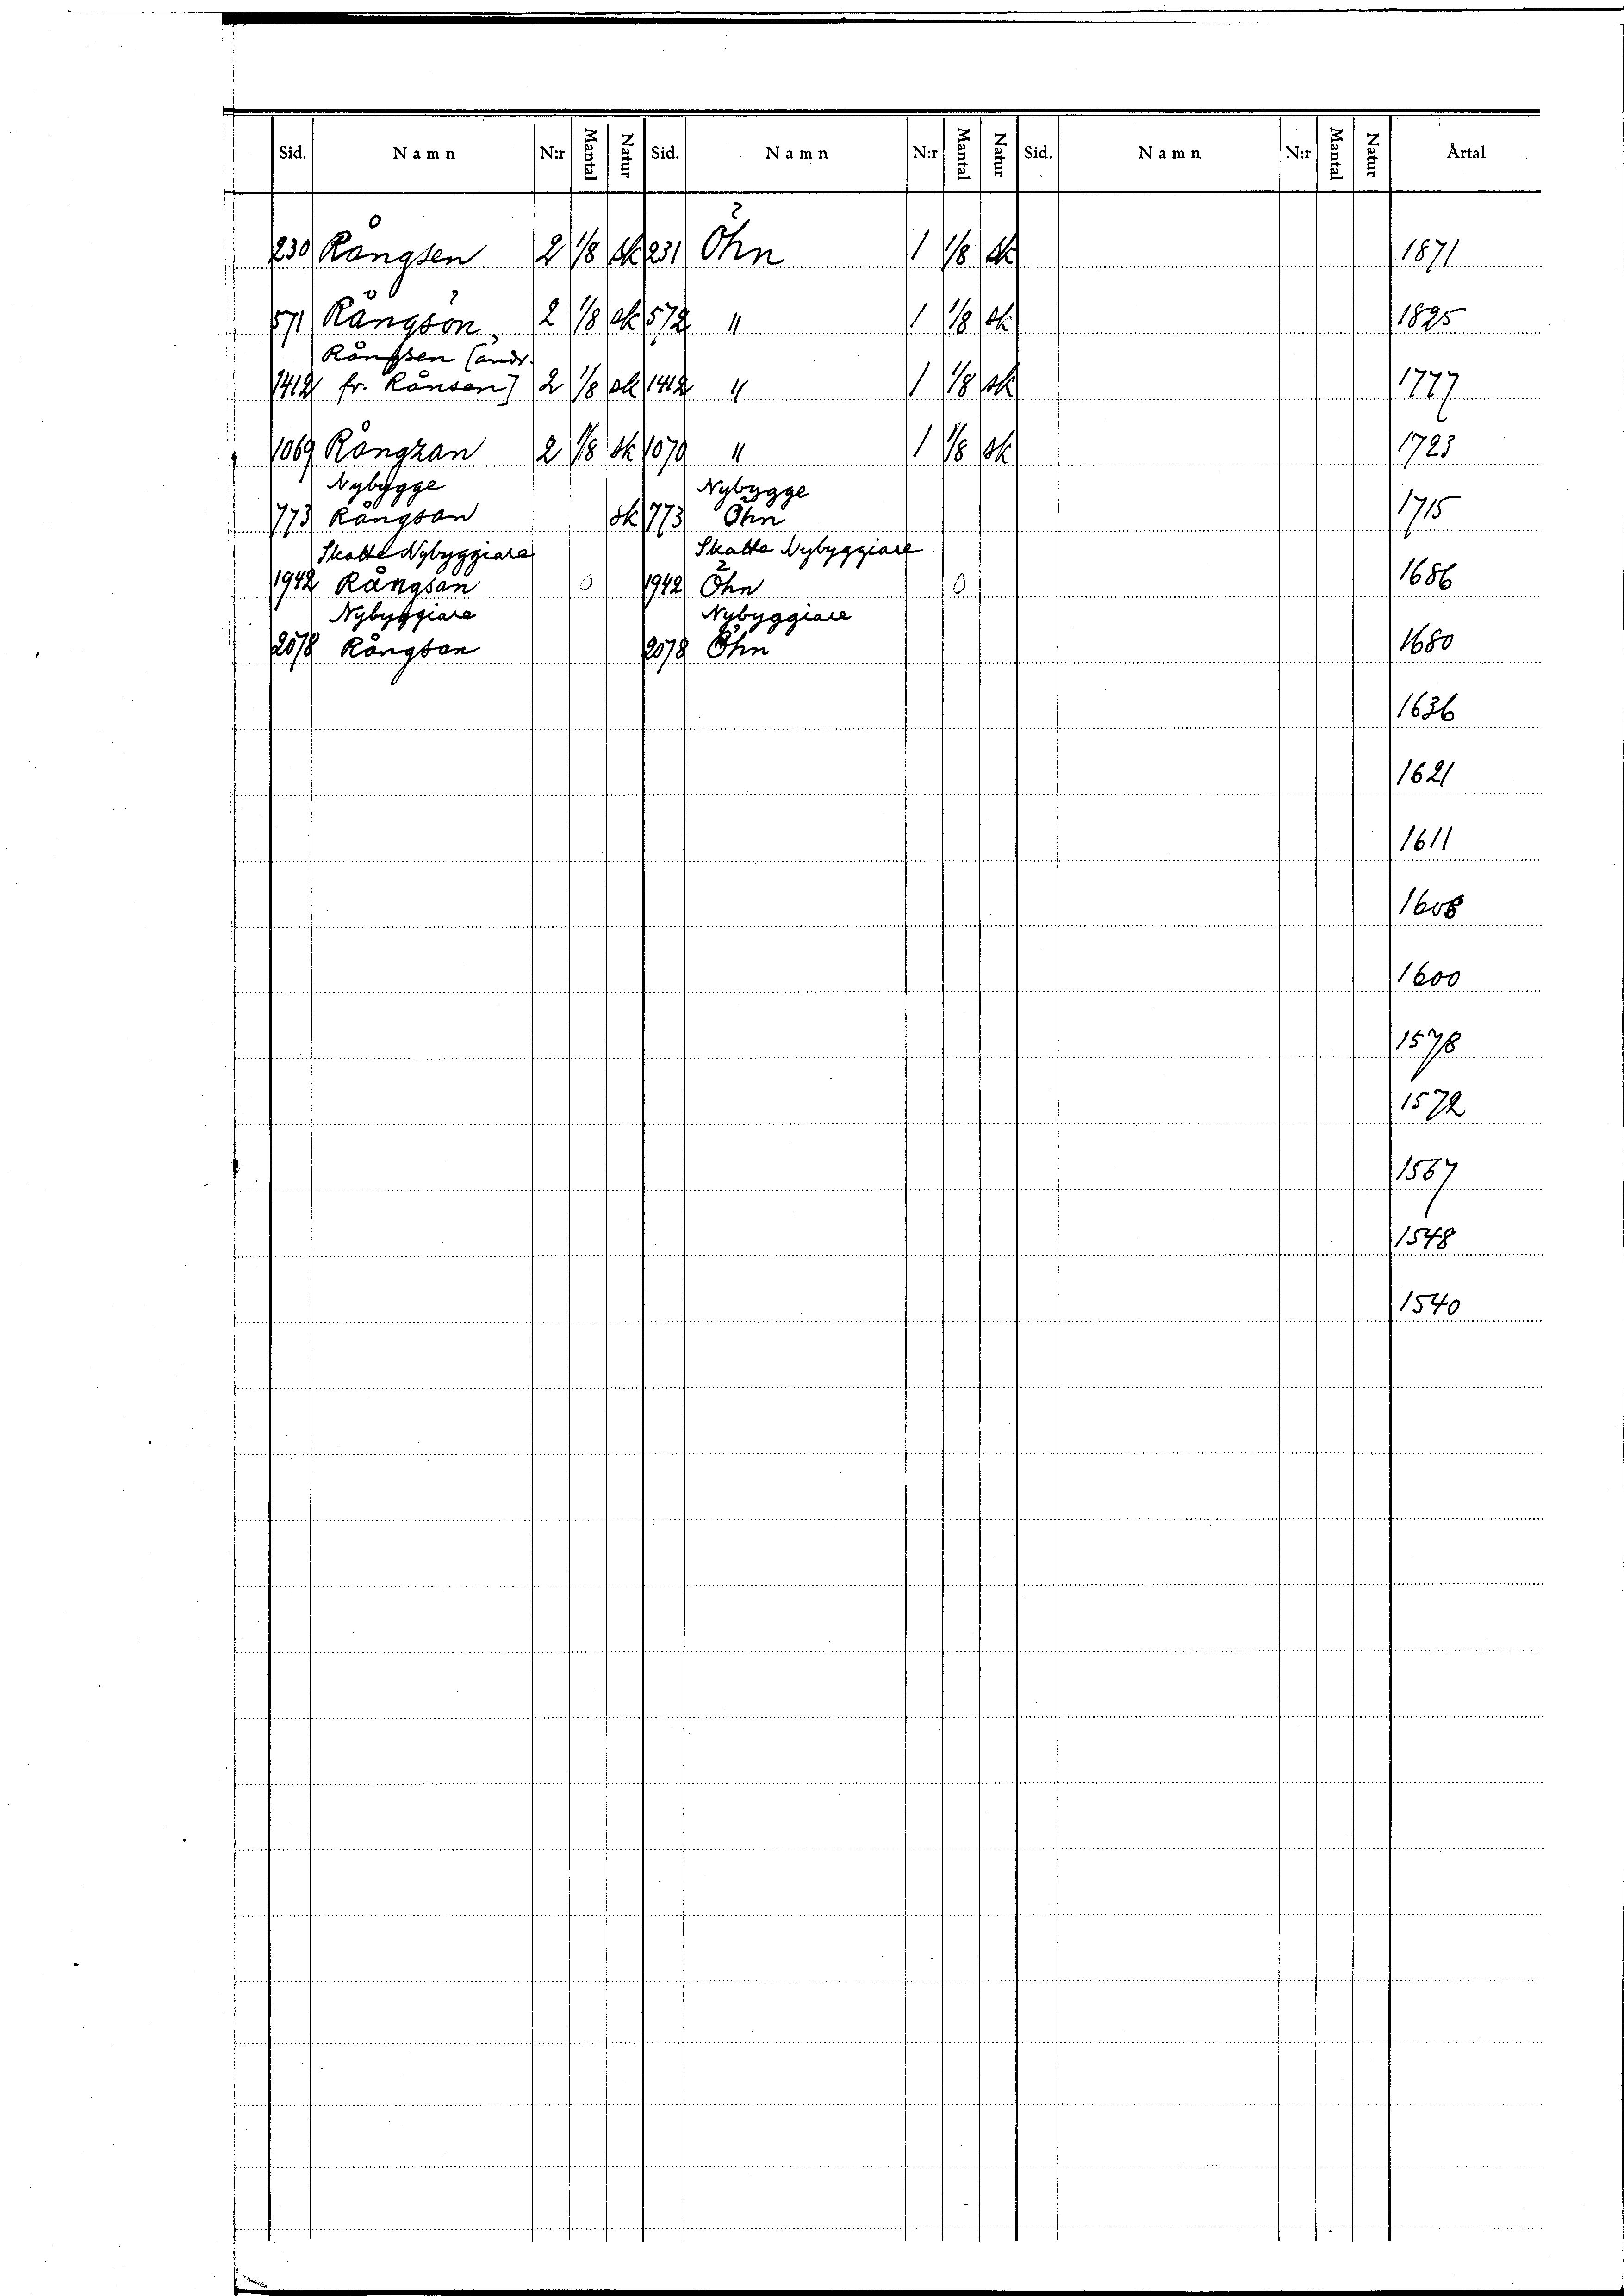 Sid. Namn N:r Mantal Natur Sid. Namn N:r Mantal Natur Sid. Namn N:r Mantal Natur Årtal
230 Rångsen 2 1/8 sk 231 Öhn 1 1/8 sk 1871
571 Rångsön 2 1/8 sk 572 " 1 1/8 sk 1825
Rångsen [ändr.
1412 fr. Rånsen] 2 1/8 sk 1412 " 1 1/8 sk 1777
1069 Rångzan 2 1/8 sk 1070 " 1 1/8 sk 1723
Nybygge Nybygge
773 Rångsan sk 773 Öhn 1715
Skatte Nybyggiare Skatte Nybyggiare
1942 Rångsan 0 1942 Öhn 0 1686
Nybyggiare Nybyggiare
2078 Rångsan 2078 Öhn 1680
1636
1621
1611
1606
1600
1578
1572
1567
1548
1540